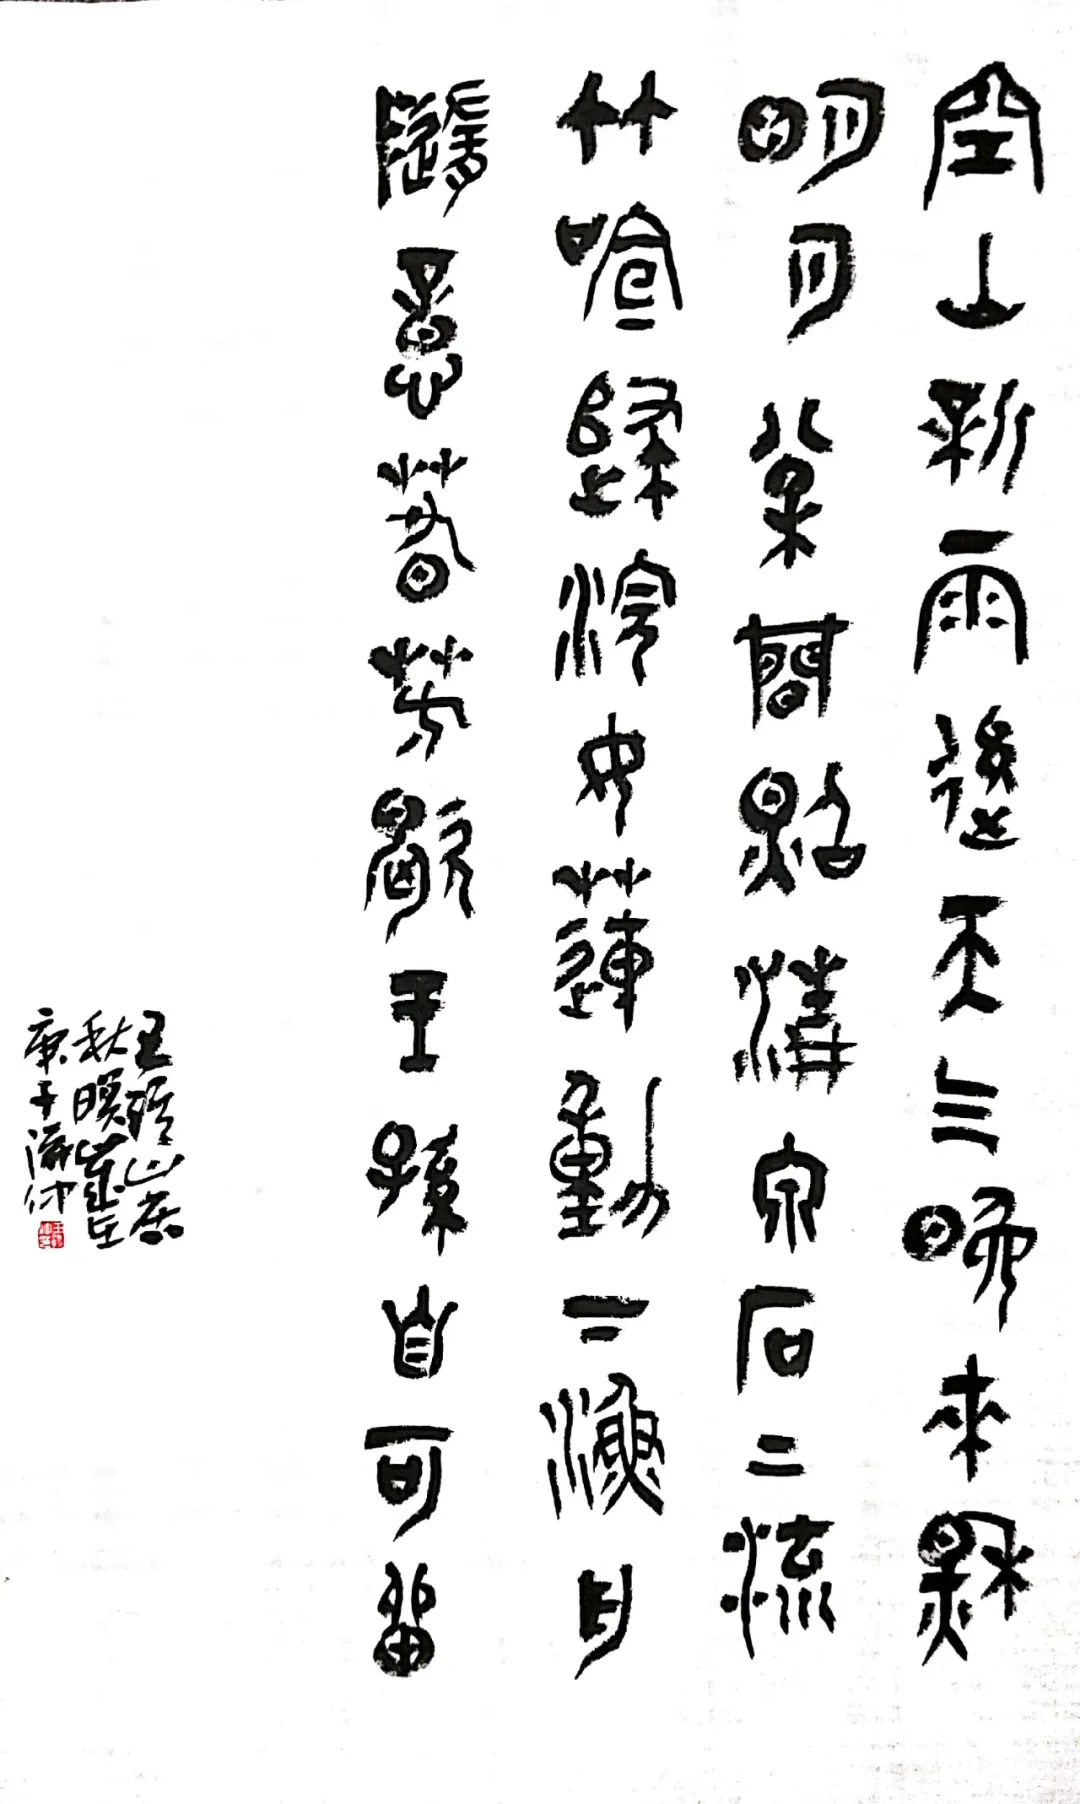 空山新雨後天气晚來秋
明月松間照清泉石上流
竹喧歸浣女蓮動下漁舟
隨意春芳歇王孫自可留
王維山居
秋暝歲在
庚子